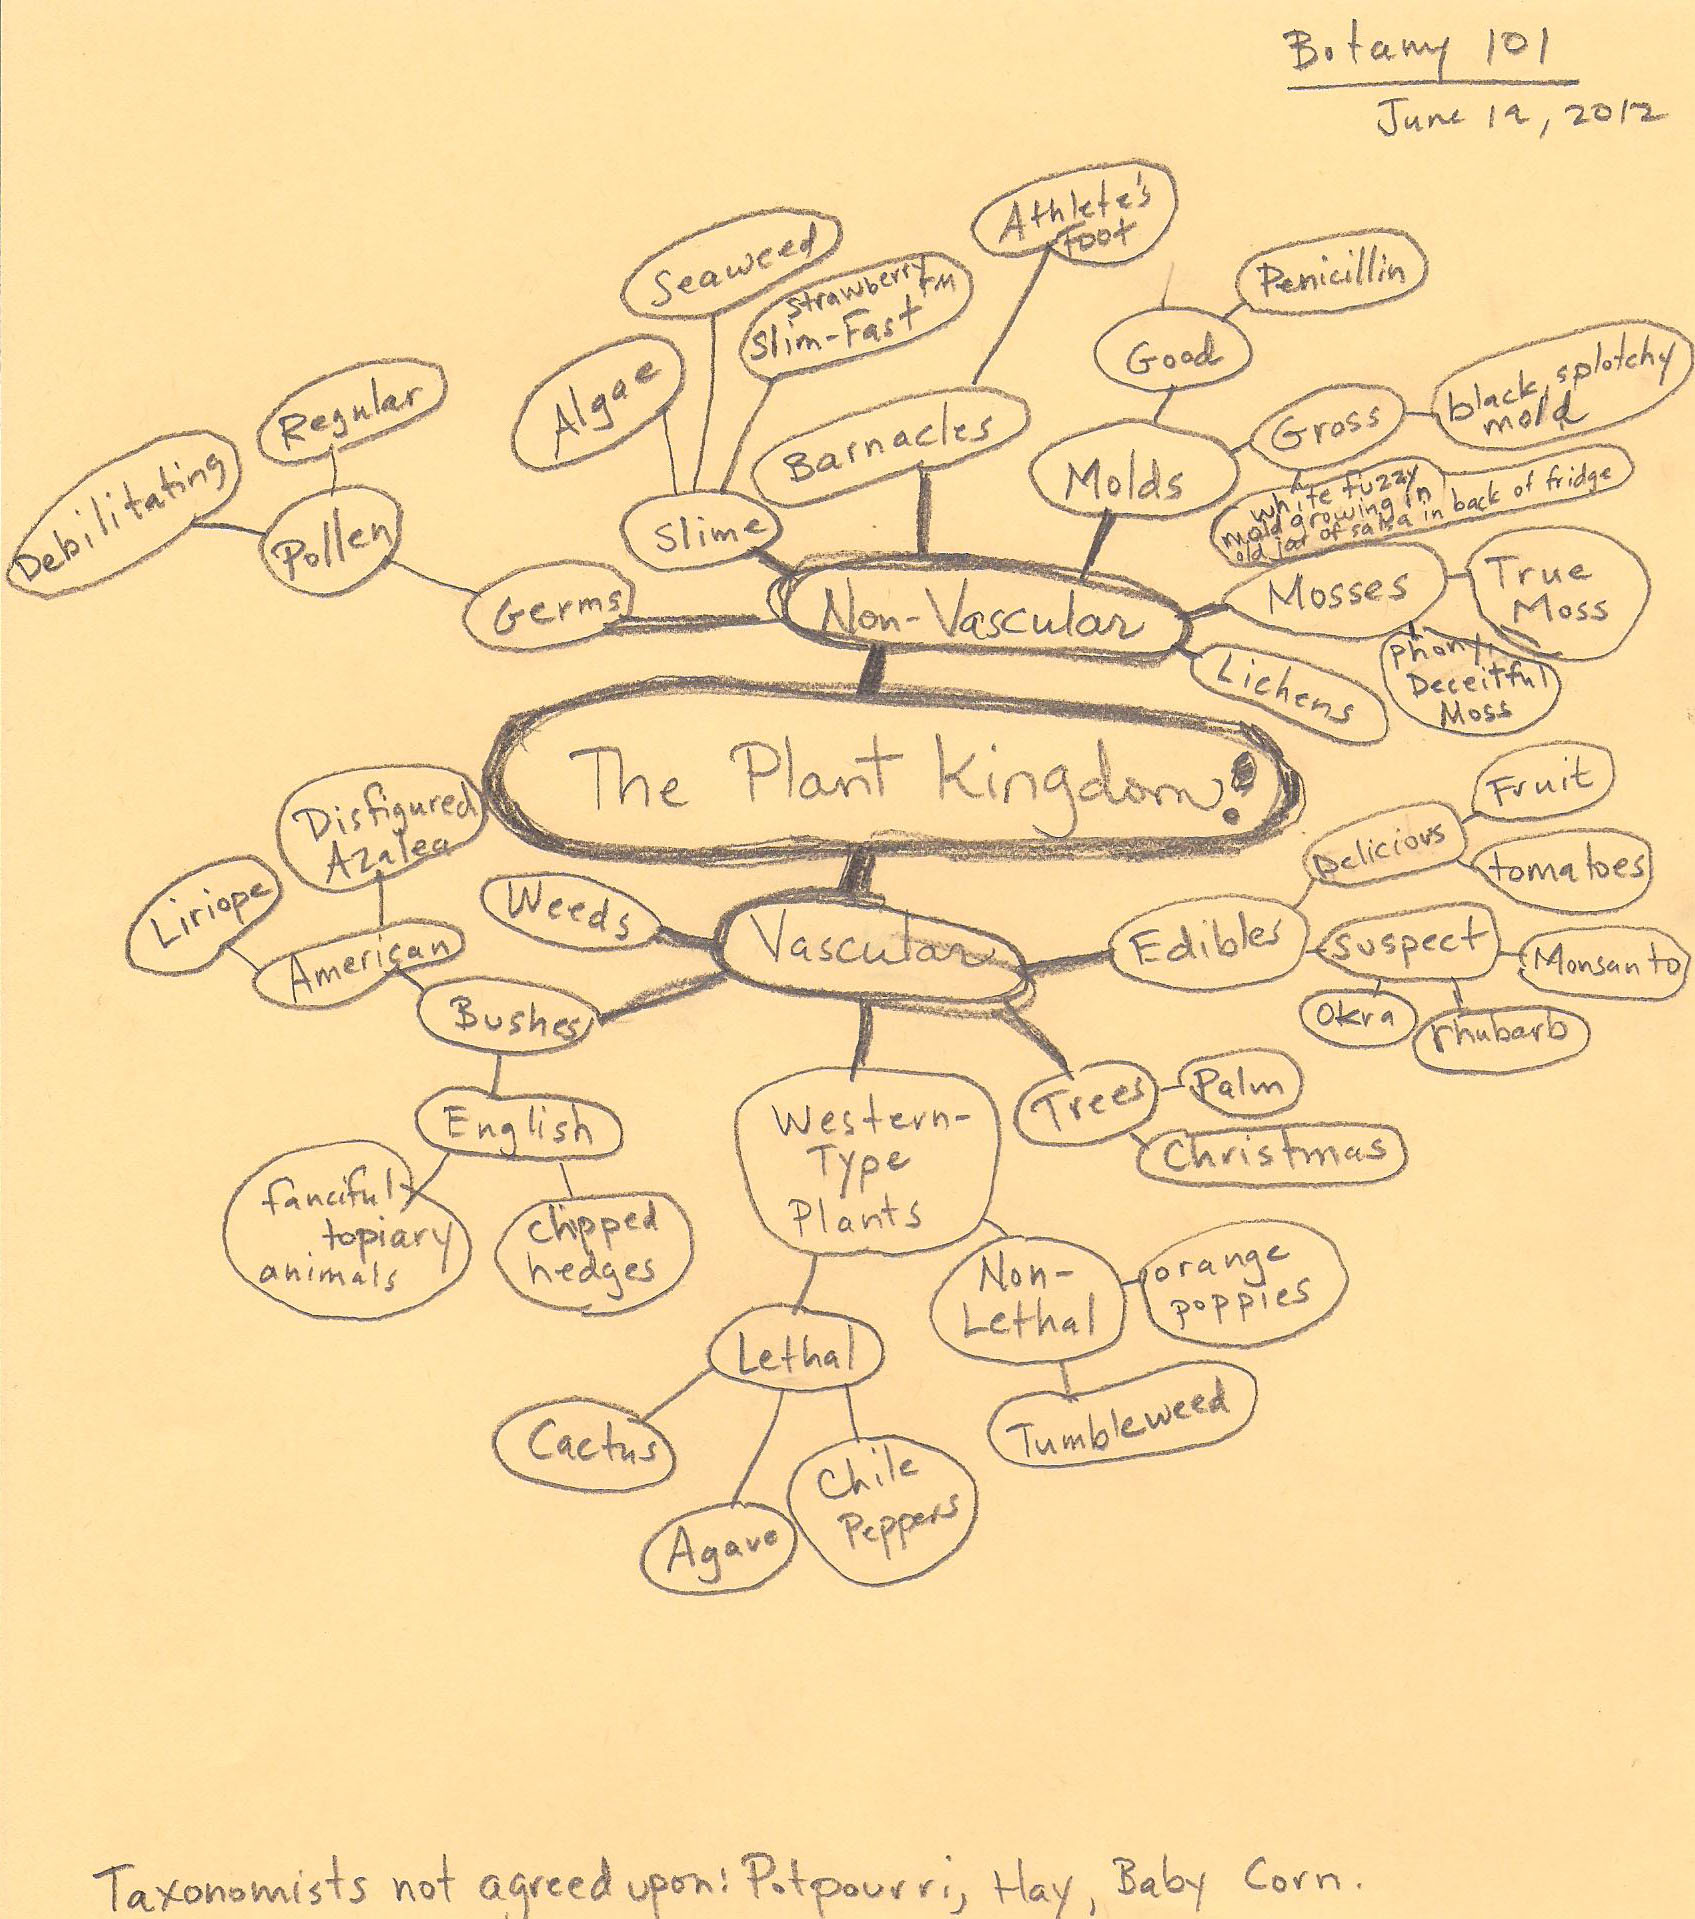 Botany 101
June 19, 2012
Athlete's
Foot
Seaweed
Strawberry
Slim-Fast™
Penicillin
Good
Algae
Regular
black, splotchy
mold
Gross
Barnacles
Molds
Debilitating
Pollen
Slime
white fuzzy
mold growing in
old jar of salsa in back of fridge
Germs
Non-Vascular
Mosses
True
Moss
Phony,
Deceitful
Moss
Lichens
The Plant Kingdom!
Disfigured
Azalea
Fruit
Delicious
tomatoes
Liriope
Weeds
Vascular
Edibles
suspect
Monsanto
American
Bushes
Okra
rhubarb
Trees
Palm
Christmas
English
Western-
Type
Plants
fanciful
topiary
animals
chipped
hedges
Non-
Lethal
orange
poppies
Lethal
Tumbleweed
Cactus
Chile
Peppers
Agave
Taxonomists not agreed upon: Potpourri, Hay, Baby Corn.